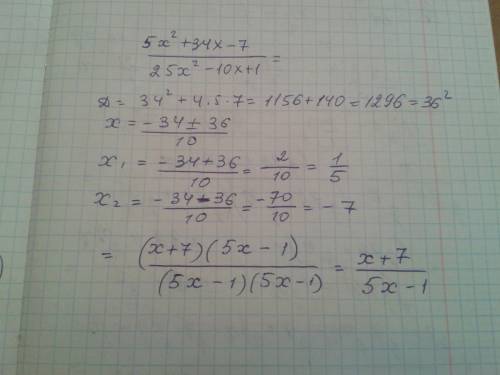 (5x² + 34x - 7) / (25x² - 10x + 1) =
D = 34² + 4·5·7 = 1156 + 140 = 1296 = 36²
x = (-34 ± 36) / 10
x₁ = (-34 + 36) / 10 = 2/10 = 1/5
x₂ = (-34 - 36) / 10 = -70/10 = -7
= ((x+7)(5x-1)) / ((5x-1)(5x-1)) = (x+7) / (5x-1)